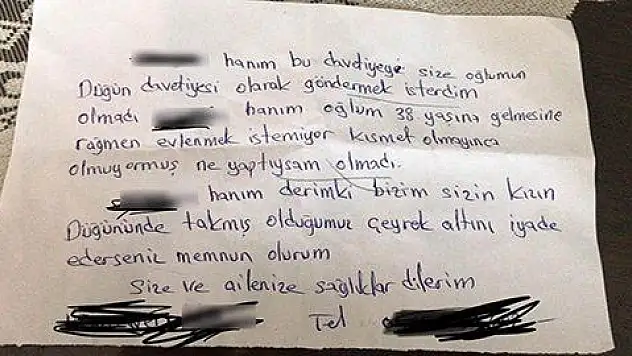 hanım bu davdiyeyi size oğlumun
Düğün davetiyesi olarak göndermek isterdim
olmadı hanım oğlum 38 yaşına gelmesine
rağmen evlenmek istemiyor kısmet olmayınca
olmuyormuş ne yaptıysam olmadı.
hanım derimki bizim sizin kızın
Düğününde takmış olduğumuz çeyrek altını iyade
ederseniz memnun olurum
Size ve ailenize sağlıklar dilerim
Tel